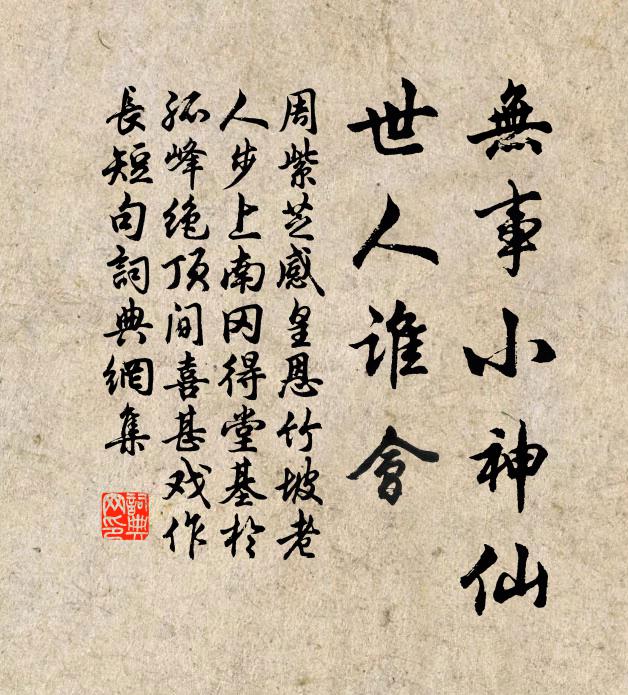 無事小神仙
世人誰會
周紫芝感皇恩竹坡老
人步上南冈得堂基於
孤峰绝顶间喜甚戏作
長短句詞典網集
詞典网印